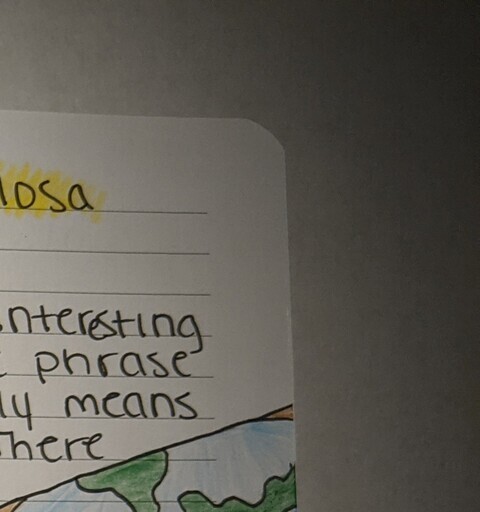 losa
nteresting
phrase
ly means
here